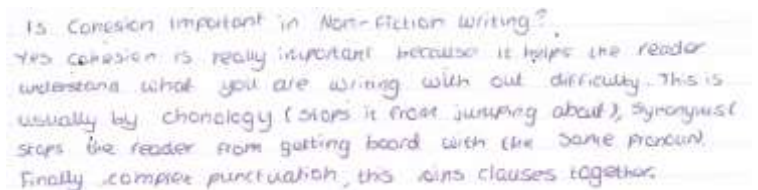 Is Cohesion Important in Non-Fiction writing?
Yes cohesion is really important because it helps the reader
understand what you are writing with out difficulty. This is
usually by chonology (stops it from jumping about), Synonyms (
stops the reader from getting board with the same pronoun).
Finally complex punctuation, this joins clauses together.